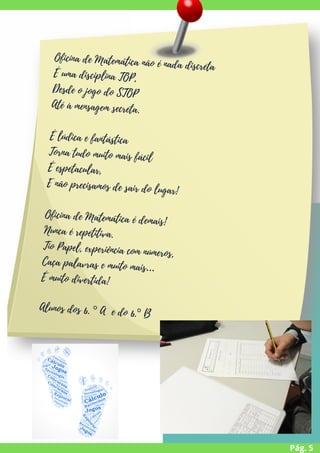 Oficina de Matemática não é nada discreta
É uma disciplina TOP,
Desde o jogo do STOP
Até à mensagem secreta.
É lúdica e fantástica
Torna tudo muito mais fácil
É espetacular,
E não precisamos de sair do lugar!
Oficina de Matemática é demais!
Nunca é repetitiva.
Tio Papel, experiência com números,
Caça palavras e muito mais...
É muito divertida!
Alunos dos 6. º A e do 6.º B
Cálculo
Jogos
Cálculo
Jogos
Pág. 5